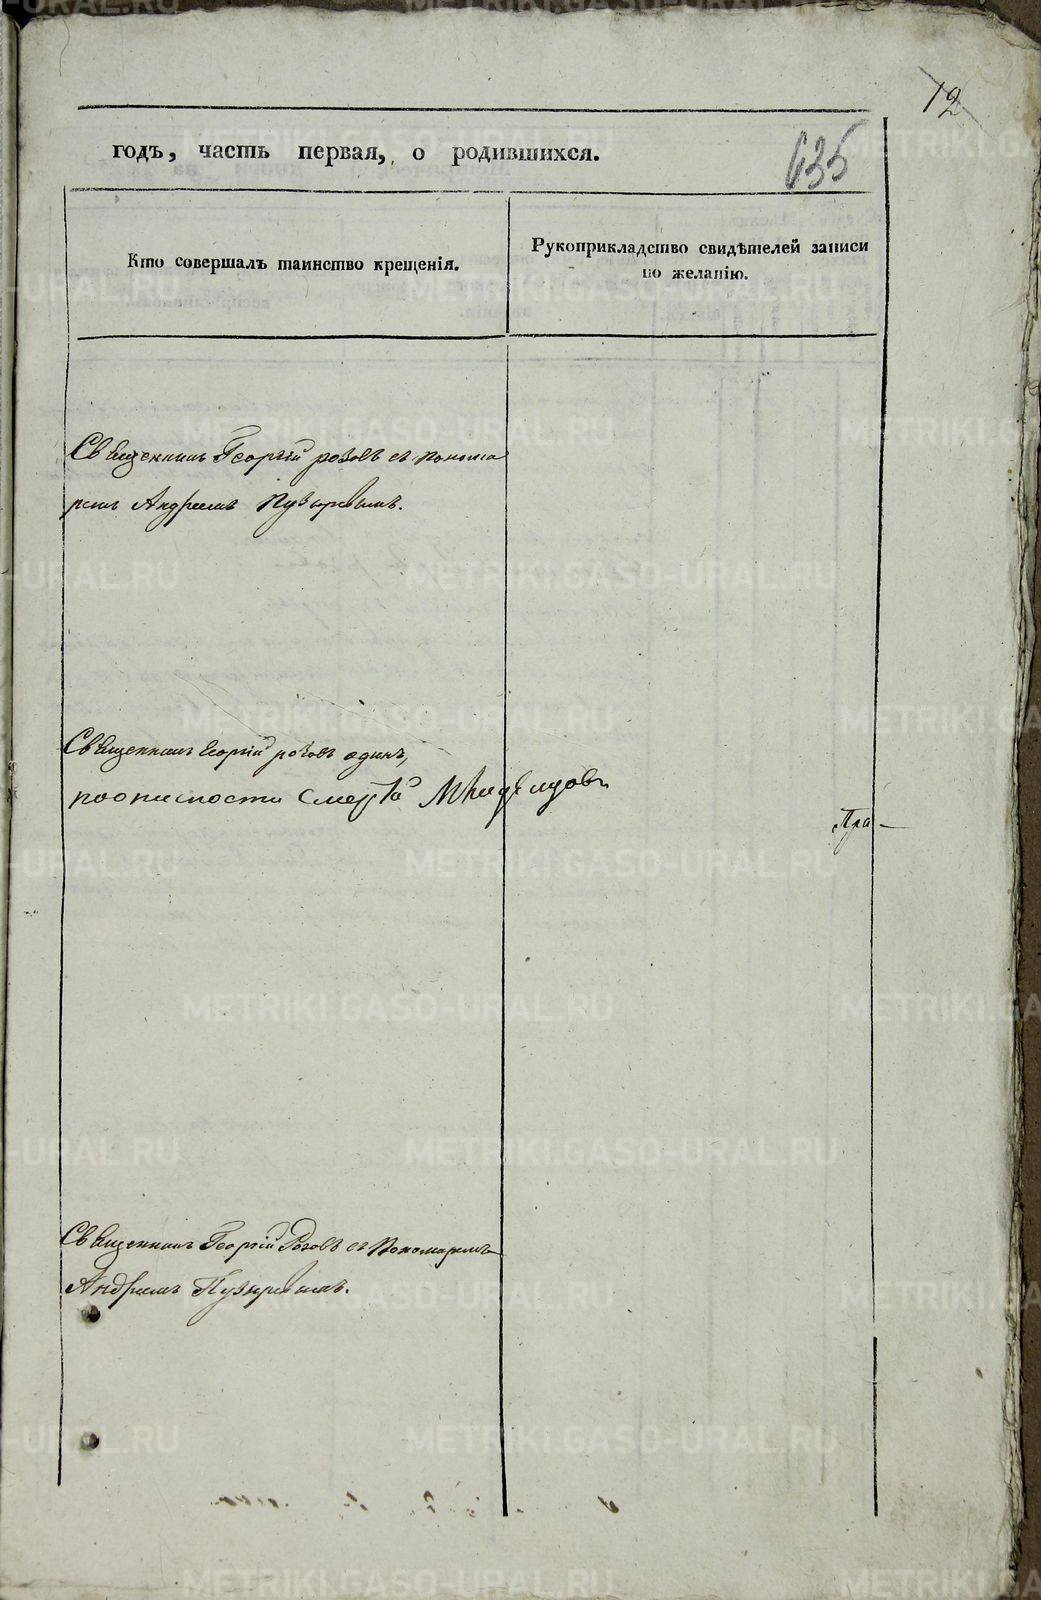 12
годъ, часть первая, о родившихся.
635
Кто совершалъ таинство крещенія.
Рукоприкладство свидѣтелей записи
по желанію.
Священникъ Георгій розовъ съ понома
ремъ Андреемъ Пузыревымъ.
Священникъ Георгій розовъ одинъ,
поопасности смерти Младенцовъ
Пра-
Священникъ Георгій Розовъ съ Пономаремъ
Андреемъ Пузыревымъ.
METRIKI.GASO-URAL.RU